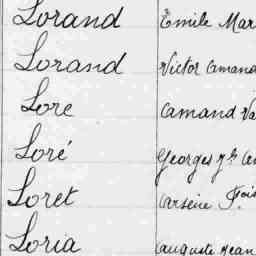 Lorand Emile Mar
Lorand Victor Amand
Lore Amand Va
Loré Georges
Loret Arsène F.
Loria Auguste Jean